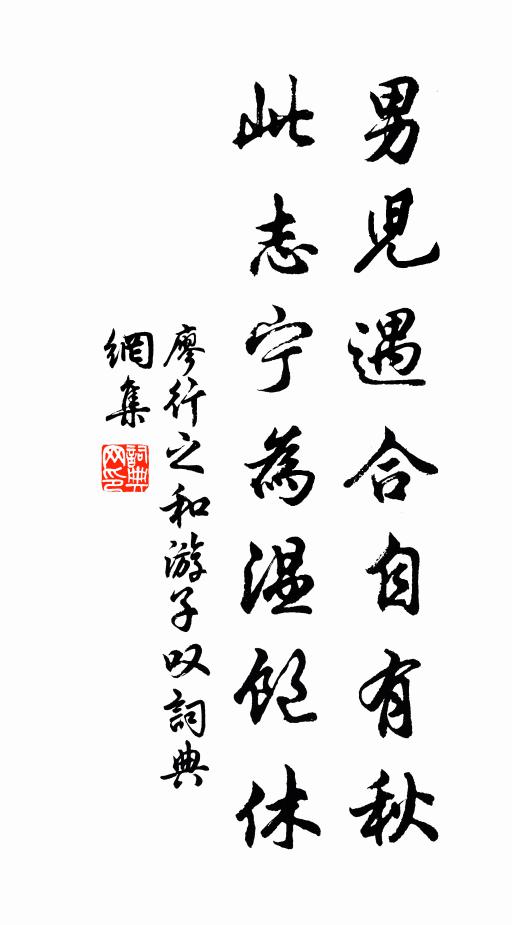 男児遇合自有秋
此志宁為温飽休
廖行之和游子叹詞典
網集
詞典
网印